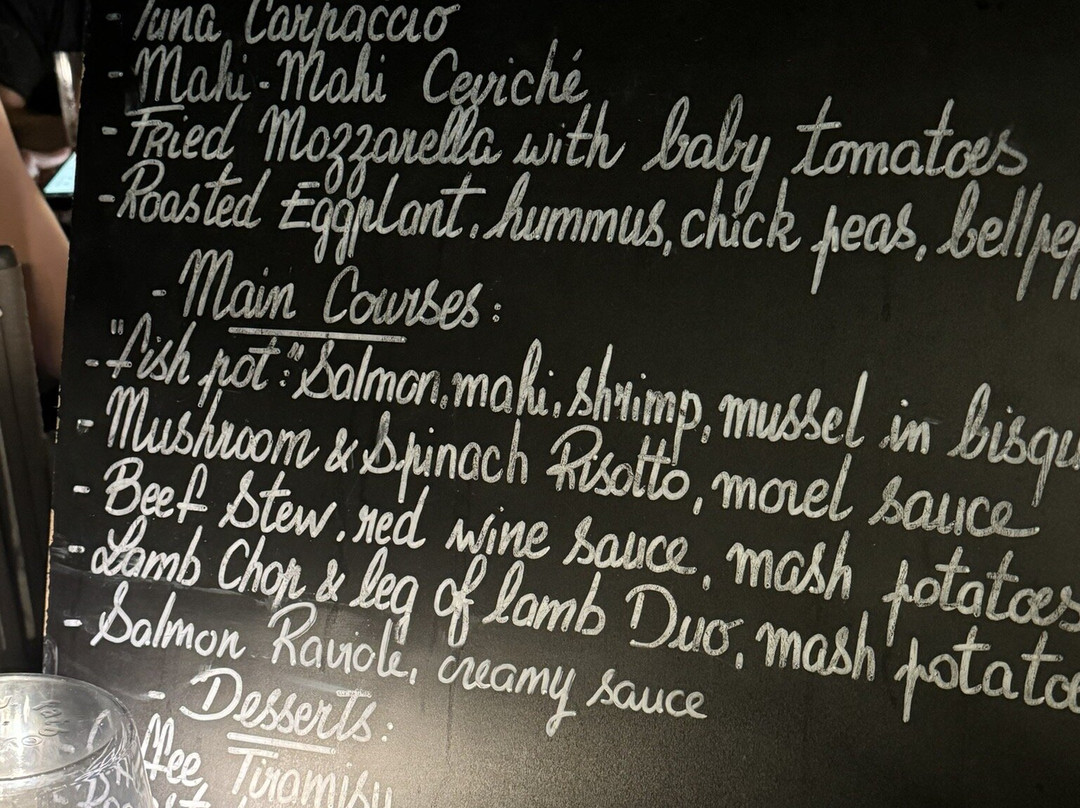 - Tuna Carpaccio
- Mahi-Mahi Ceviché
- Fried Mozzarella with baby tomatoes
- Roasted Eggplant, hummus, chick peas, bellpep
- Main Courses:
- "fish pot:" Salmon, mahi, shrimp, mussel in bisqu
- Mushroom & Spinach Risotto, morel sauce
- Beef Stew, red wine sauce, mash potatoes
- Lamb Chop & leg of lamb Duo, mash potatoe
- Salmon Raviole, creamy sauce
- Desserts:
Tiramisu